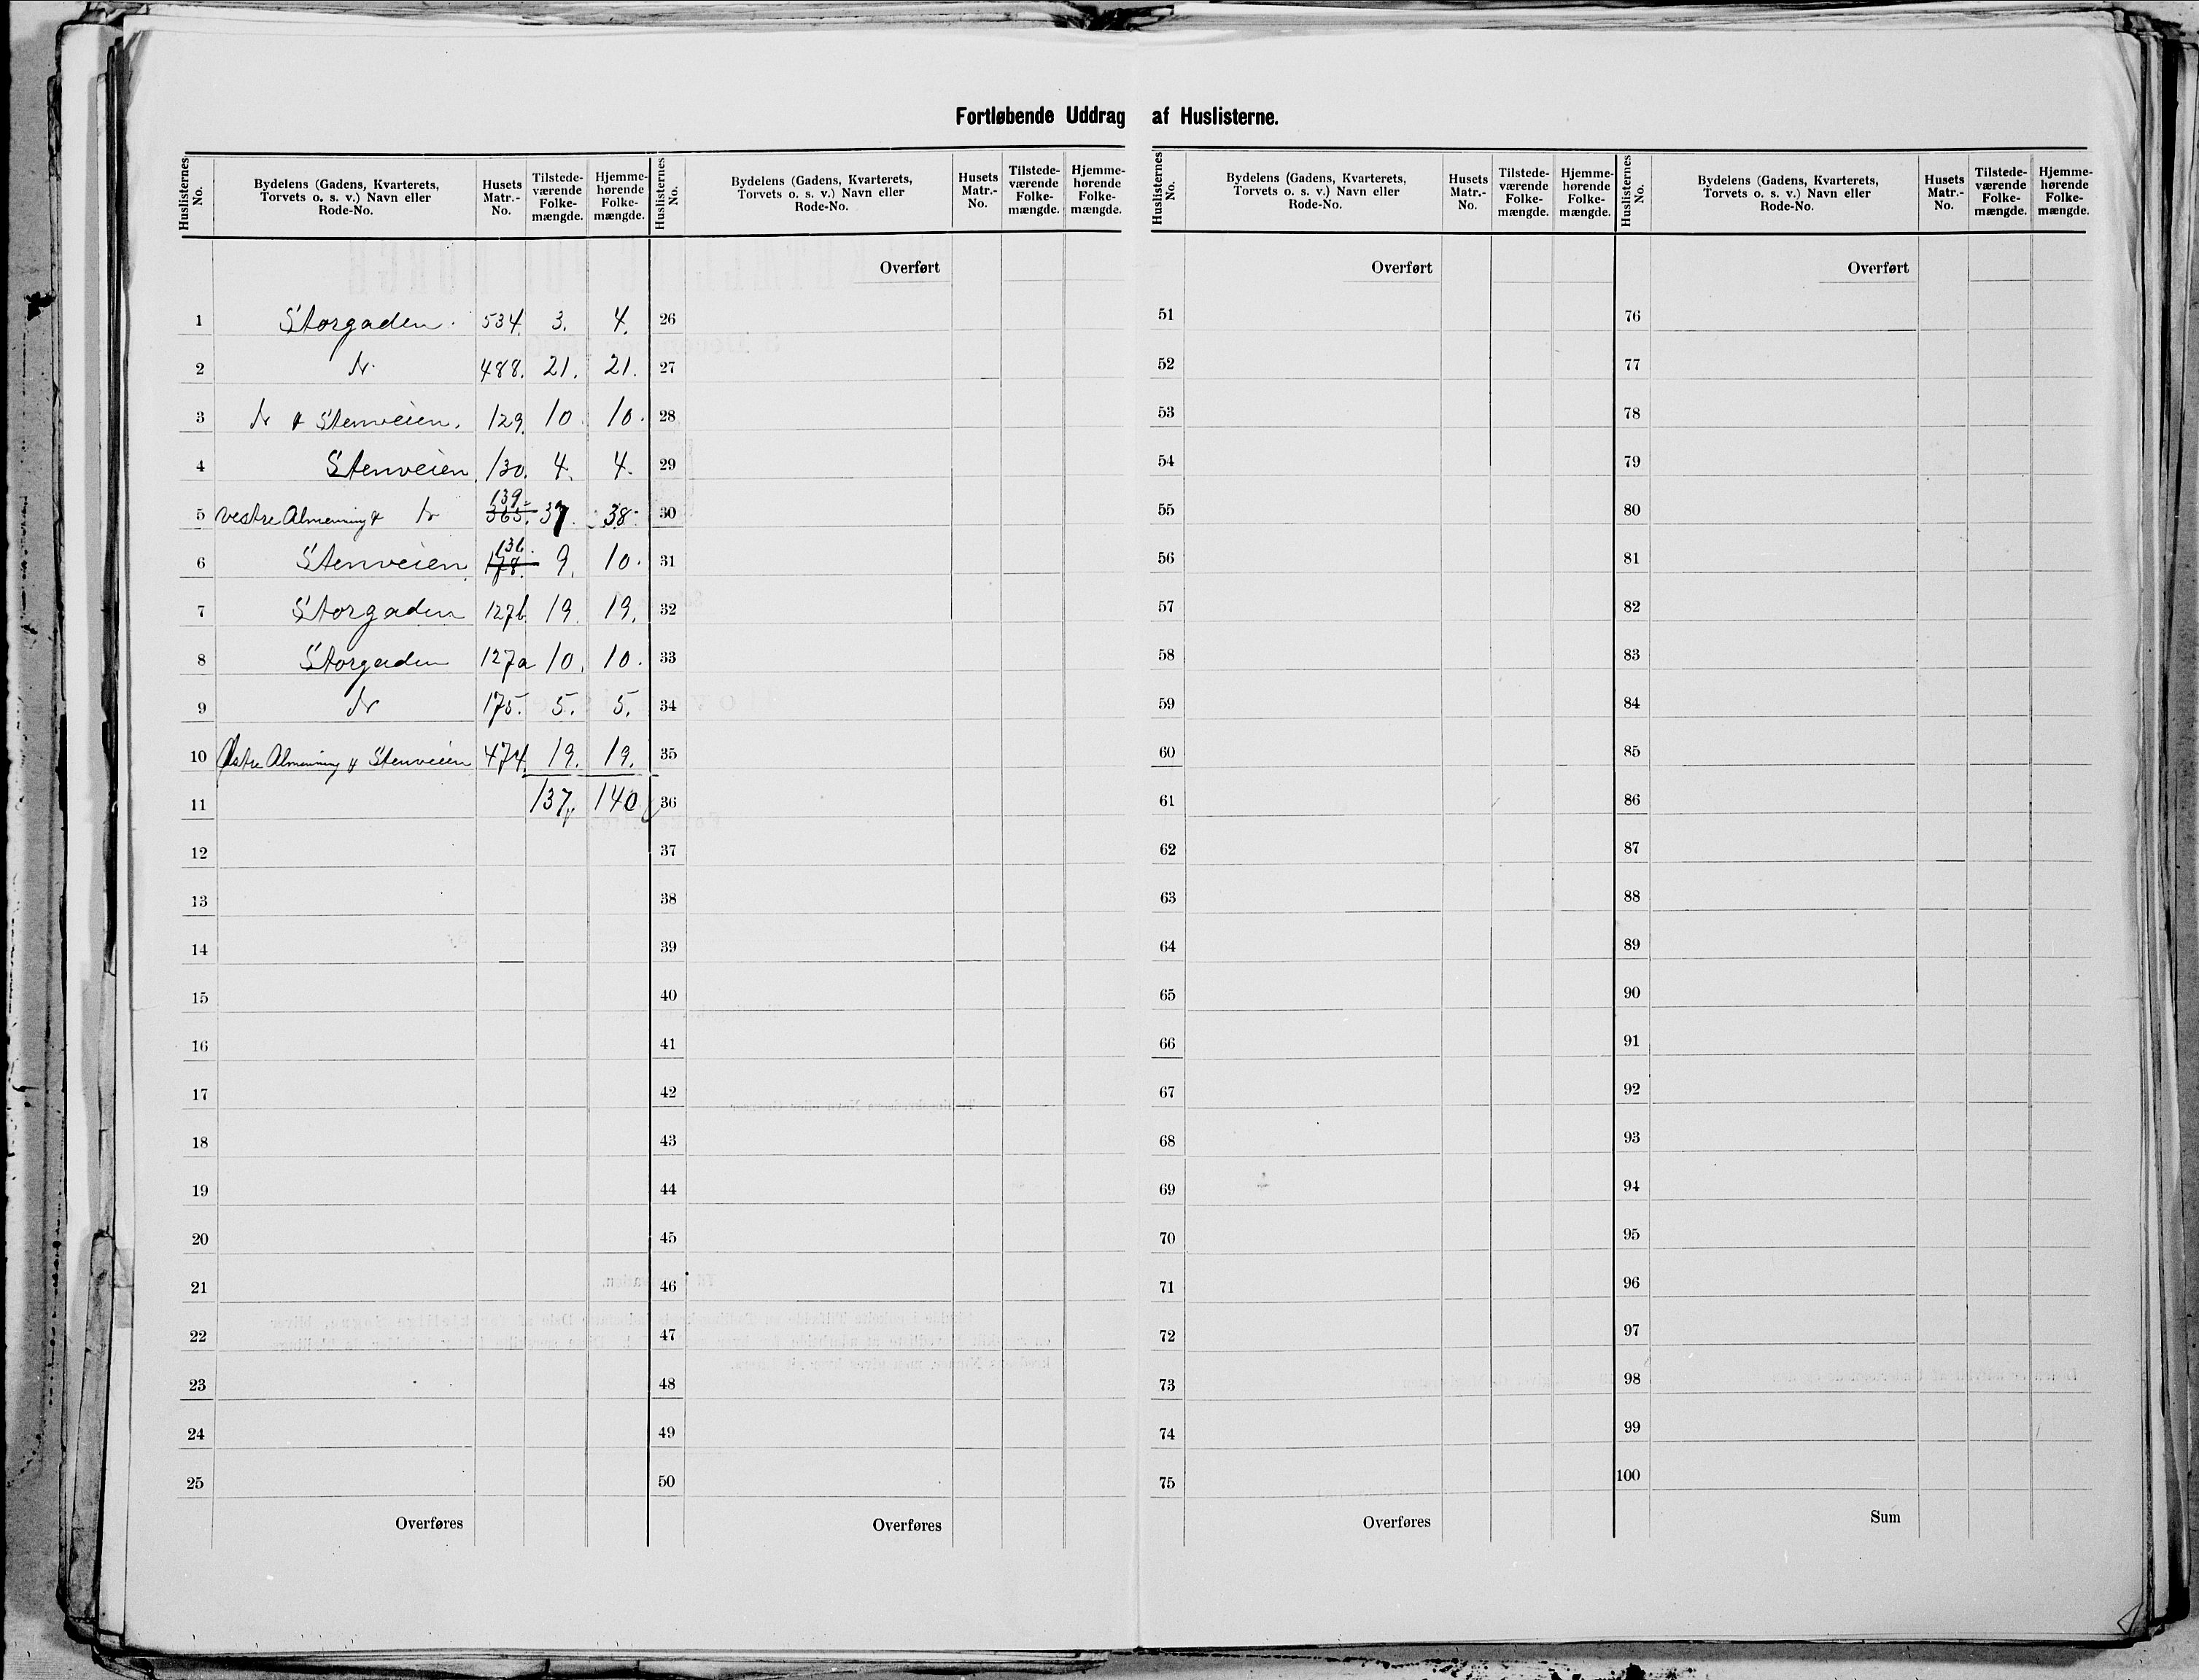 Fortløbende Uddrag af Huslisterne.
Huslisternes No. | Bydelens (Gadens, Kvarterets, Torvets o. s. v.) Navn eller Rode-No. | Husets Matr.-No. | Tilstede-værende Folke-mængde. | Hjemme-hørende Folke-mængde.
1 Storgaden. 534. 3. 4.
2 488. 21. 21.
3 & Stenveien. 129. 10. 10.
4 Stenveien. 130. 4. 4.
5 vestre Almenning & 139 365. 37. 38.
6 Stenveien 136. 178. 9. 10.
7 Storgaden 127b. 19. 19.
8 Storgaden 127a 10. 10.
9 175. 5. 5.
10 Østre Almenning & Stenveien 474. 19. 19.
11 137 140
12
13
14
15
16
17
18
19
20
21
22
23
24
25
Overføres
Huslisternes No. | Bydelens (Gadens, Kvarterets, Torvets o. s. v.) Navn eller Rode-No. | Husets Matr.-No. | Tilstede-værende Folke-mængde. | Hjemme-hørende Folke-mængde.
Overført
26
27
28
29
30
31
32
33
34
35
36
37
38
39
40
41
42
43
44
45
46
47
48
49
50
Overføres
Huslisternes No. | Bydelens (Gadens, Kvarterets, Torvets o. s. v.) Navn eller Rode-No. | Husets Matr.-No. | Tilstede-værende Folke-mængde. | Hjemme-hørende Folke-mængde.
Overført
51
52
53
54
55
56
57
58
59
60
61
62
63
64
65
66
67
68
69
70
71
72
73
74
75
Overføres
Huslisternes No. | Bydelens (Gadens, Kvarterets, Torvets o. s. v.) Navn eller Rode-No. | Husets Matr.-No. | Tilstede-værende Folke-mængde. | Hjemme-hørende Folke-mængde.
Overført
76
77
78
79
80
81
82
83
84
85
86
87
88
89
90
91
92
93
94
95
96
97
98
99
100
Sum